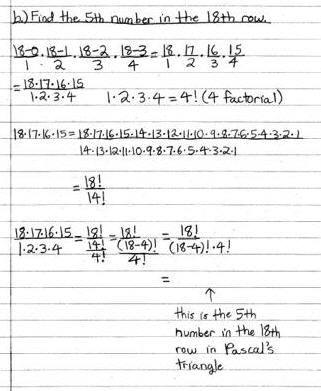 b.) Find the 5th number in the 18th row.
18-0/1 · 18-1/2 · 18-2/3 · 18-3/4 = 18/1 · 17/2 · 16/3 · 15/4
= 18·17·16·15/1·2·3·4    1·2·3·4 = 4! (4 factorial)
18·17·16·15 = 18·17·16·15·14·13·12·11·10·9·8·7·6·5·4·3·2·1/14·13·12·11·10·9·8·7·6·5·4·3·2·1
= 18!/14!
18·17·16·15/1·2·3·4 = 18!/14!/4! = 18!/(18-4)!/4! = 18!/(18-4)!·4!
=
↑
this is the 5th
number in the 18th
row in Pascal's
triangle